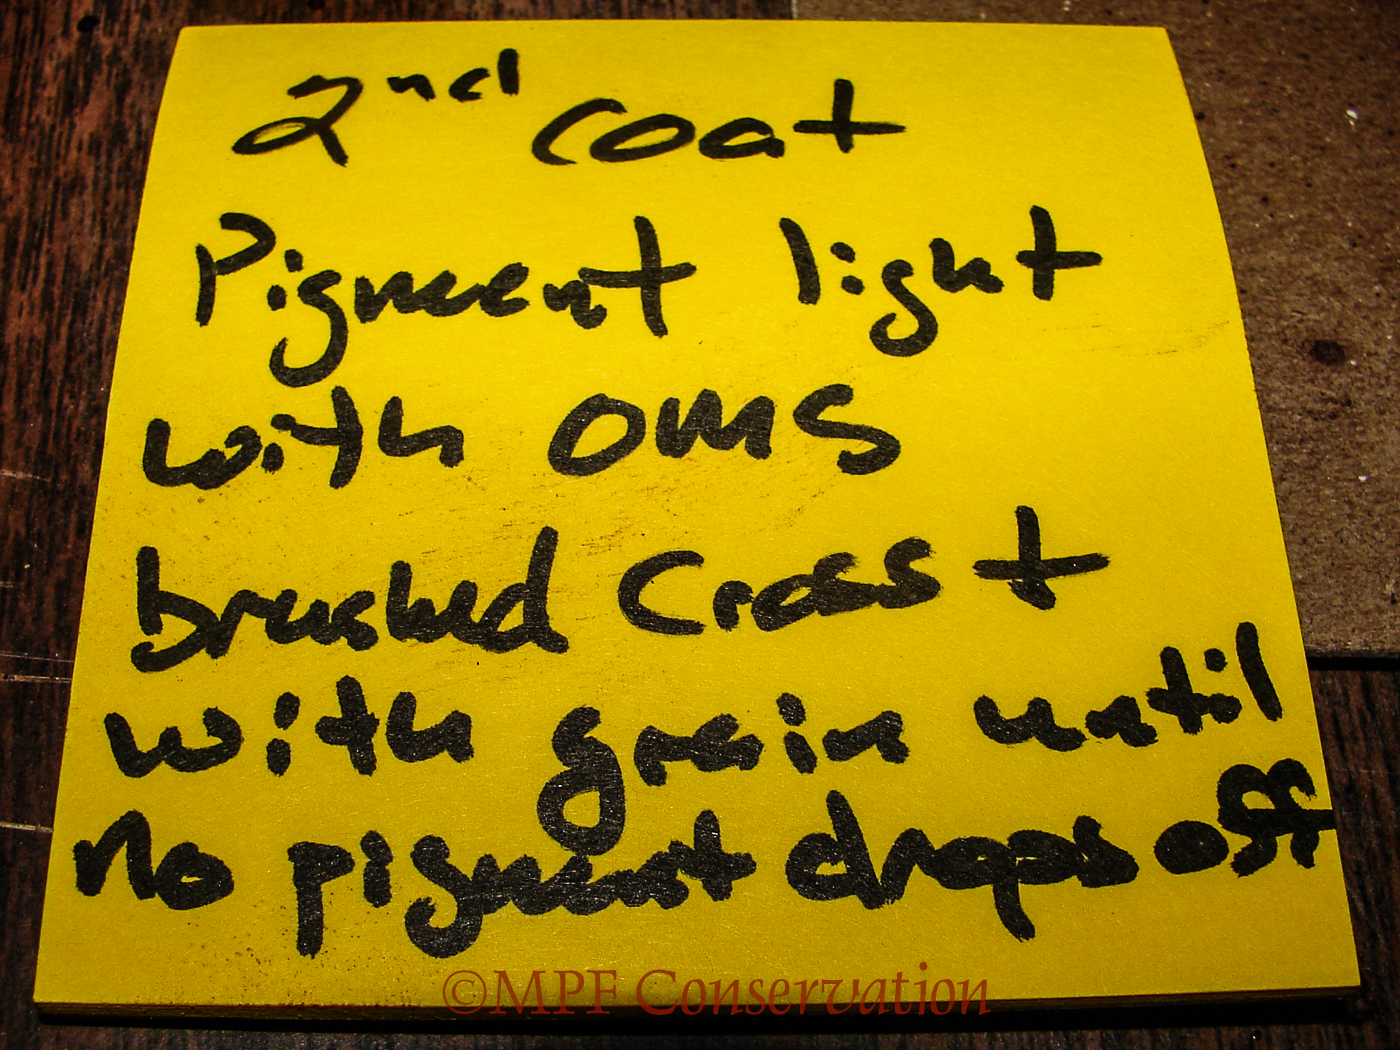 2nd coat
Pigment light
with OMS
brushed Cross +
with grain until
no pigment drops off
©MPF Conservation